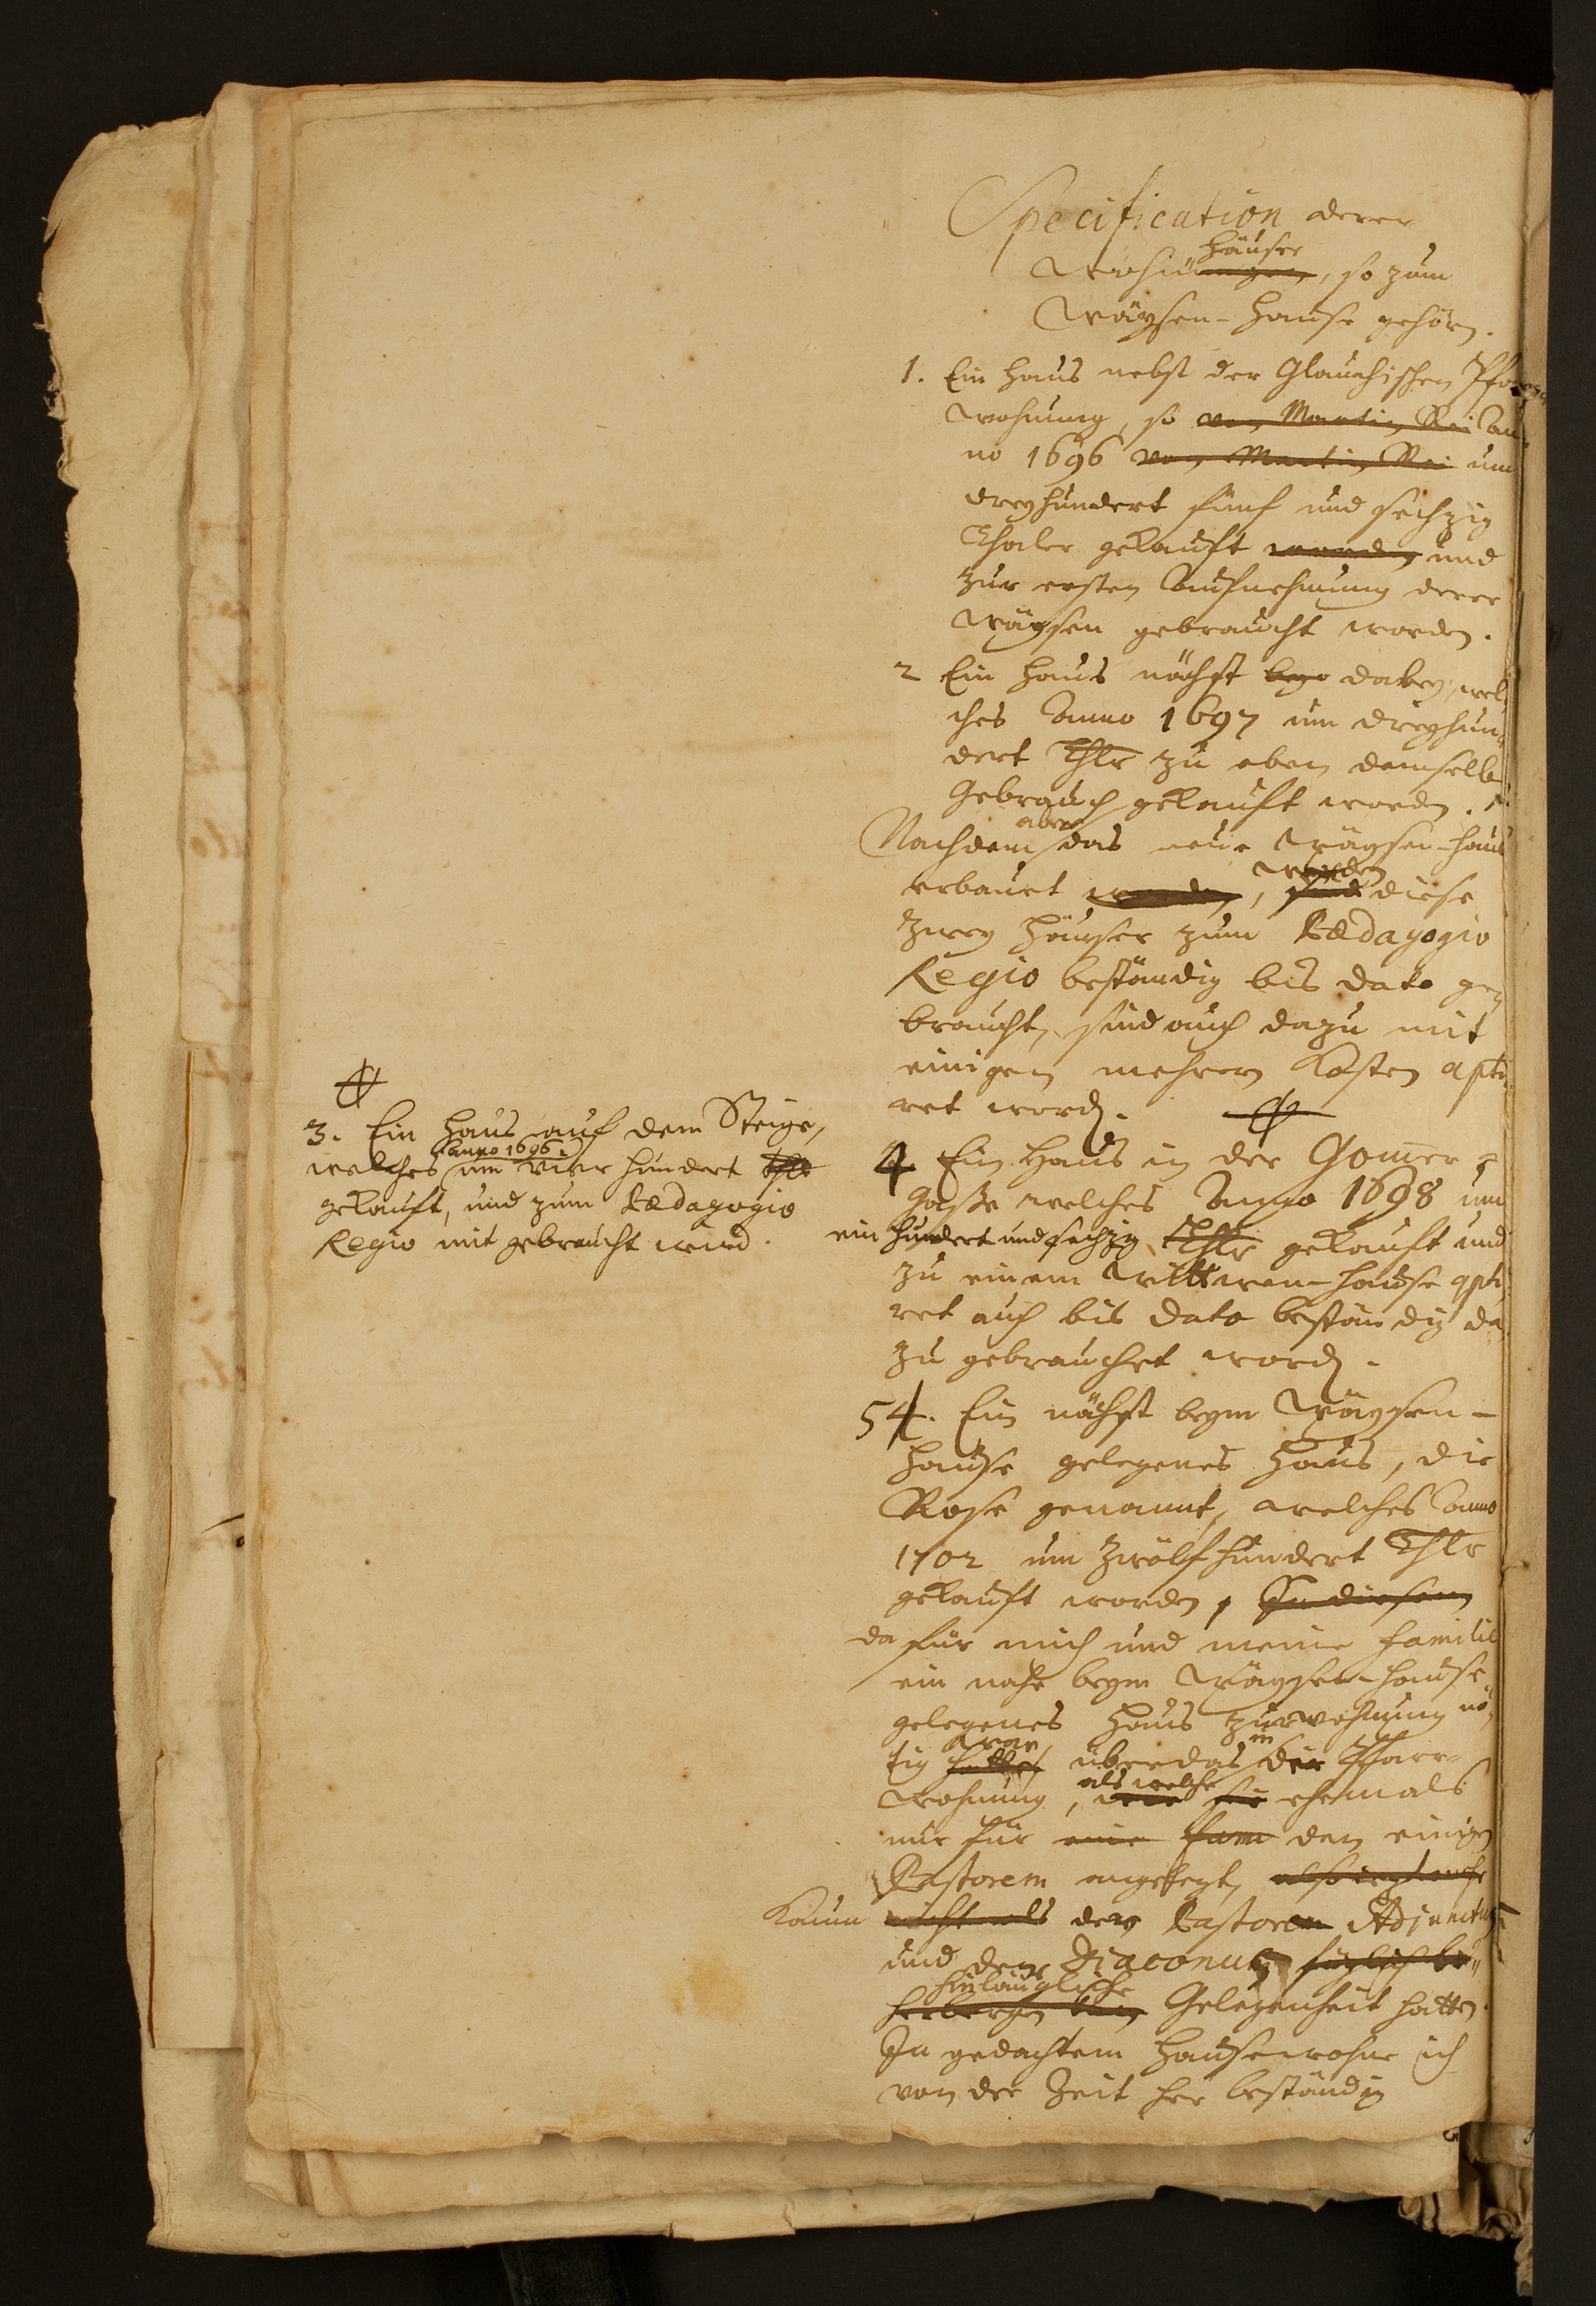 Specification derer
Häuser
Wohnungen, so zum
Wäysen-Hause gehörn.
1. Ein Haus nebst der Glauchischen Pfarr
Wohnung, so von Martin Rei An
no 1696 von Martin Rei um
dreyhundert fünf und sechzig
Thaler gekauft worden und
zur ersten Aufnehmung derer
Wäysen gebraucht worden.
2 Ein Haus nächst dabey, wel
ches Anno 1697 um dreyhun
dert Thlr zu eben demselben
Gebrauch gekauft worden.
aber
Nachdem das neue Wäysen-Haus
worden
erbauet worden, sind diese
zwey Häuser zum Pædagogio
Regio beständig bis dato ge
braucht, sind auch dazu mit
einigen mehrern Kosten apti
ret word.
3. Ein Haus auf dem Steige,
Anno 1696.
welches um vier hundert thlr
gekauft, und zum Pædagogio
Regio mit gebraucht wird.
4. Ein Haus in der Gomer
Gaße welches Anno 1698 um
ein hundert und sechzig Thlr gekauft und
zu einem Wittwen-Hause apti
ret auch bis dato beständig da
zu gebrauchet word.
54. Ein nächst beym Wäysen-
Hause gelegenes Haus, die
Rose genannt, welches Anno
1702 um zwölfhundert Thlr
gekauft worden, In diesem
da für mich und meine Familie
ein nahe beym Wäysen-Hause
gelegenes Haus zur wohnung nö
war in
tig hatte, überdas der Pfarr-
als welche
Wohnung, sie ehemals
nur für eine Fami den einigen
Pastorem angelegt,
kaum nicht als der Pastoren Adjunctus
und der Diaconus füglich be
hinlängliche
herbergen kan Gelegenheit hatten.
In gedachtem Hause wohne ich
von der Zeit her beständig